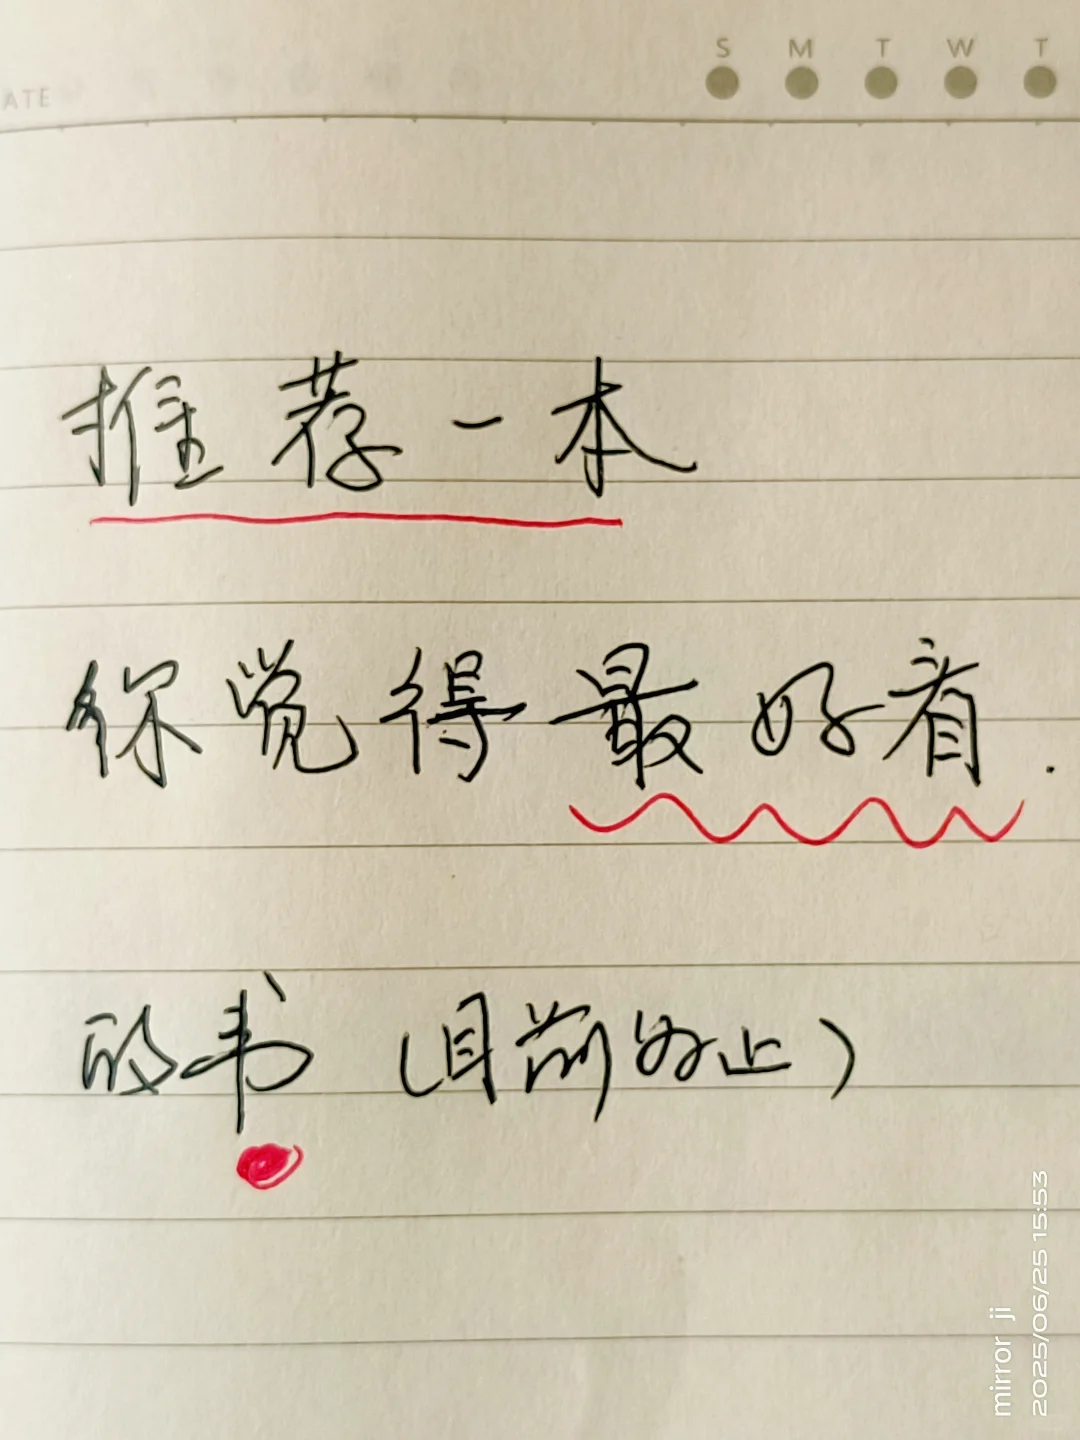 ATE
S M T W T
推荐一本
你觉得最好看.
的书(目前为止)
mirror ji
2025/06/25 15:53